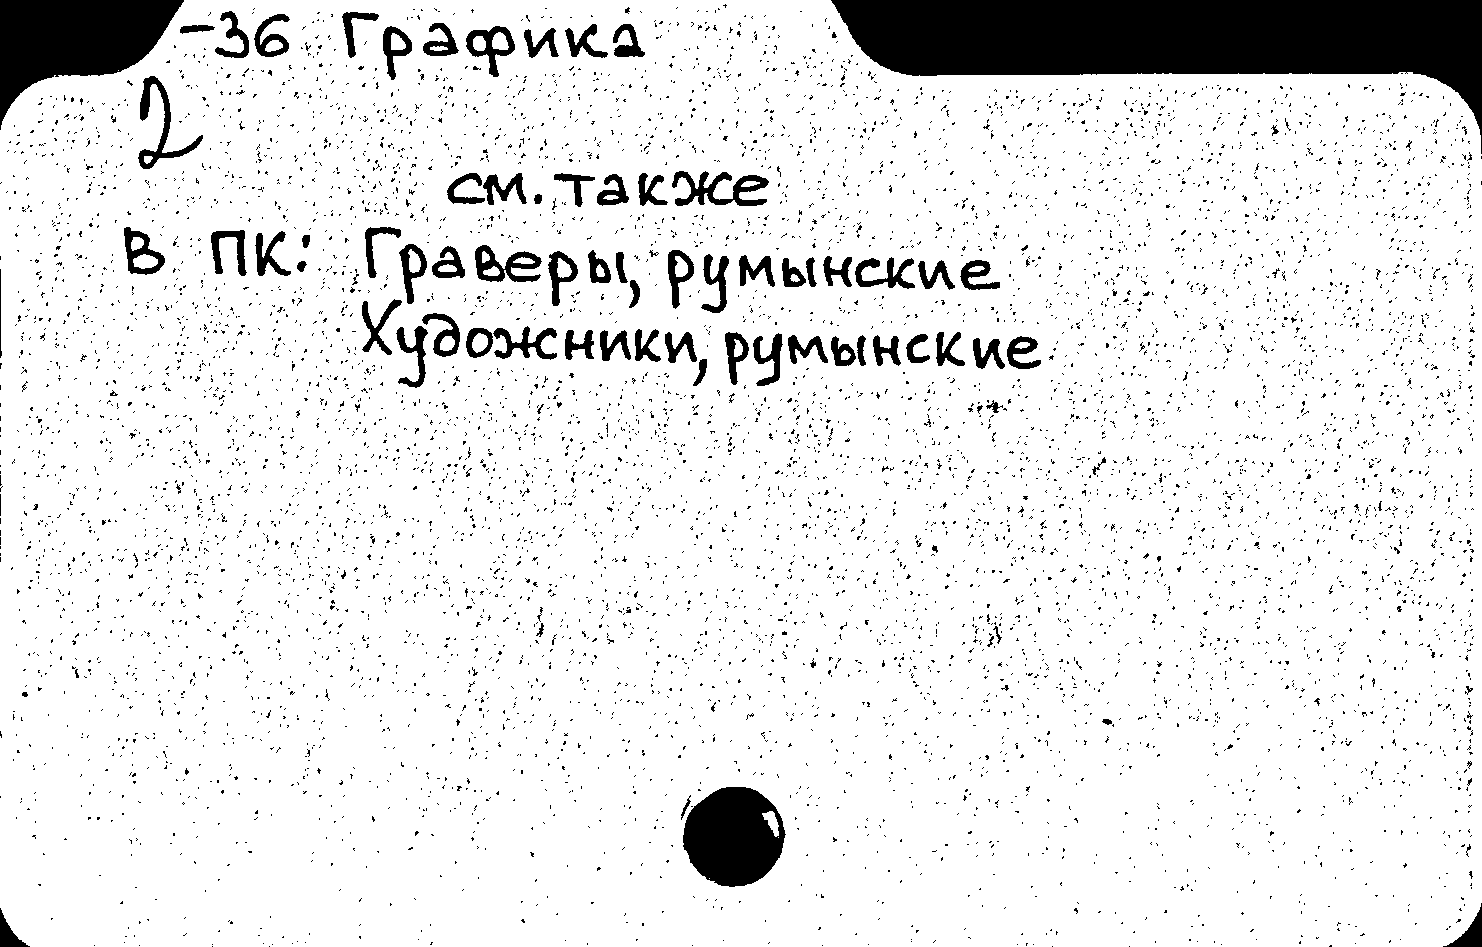 -36 Графика
2
см. также
В ПК: Граверы, румынские
Художники, румынские